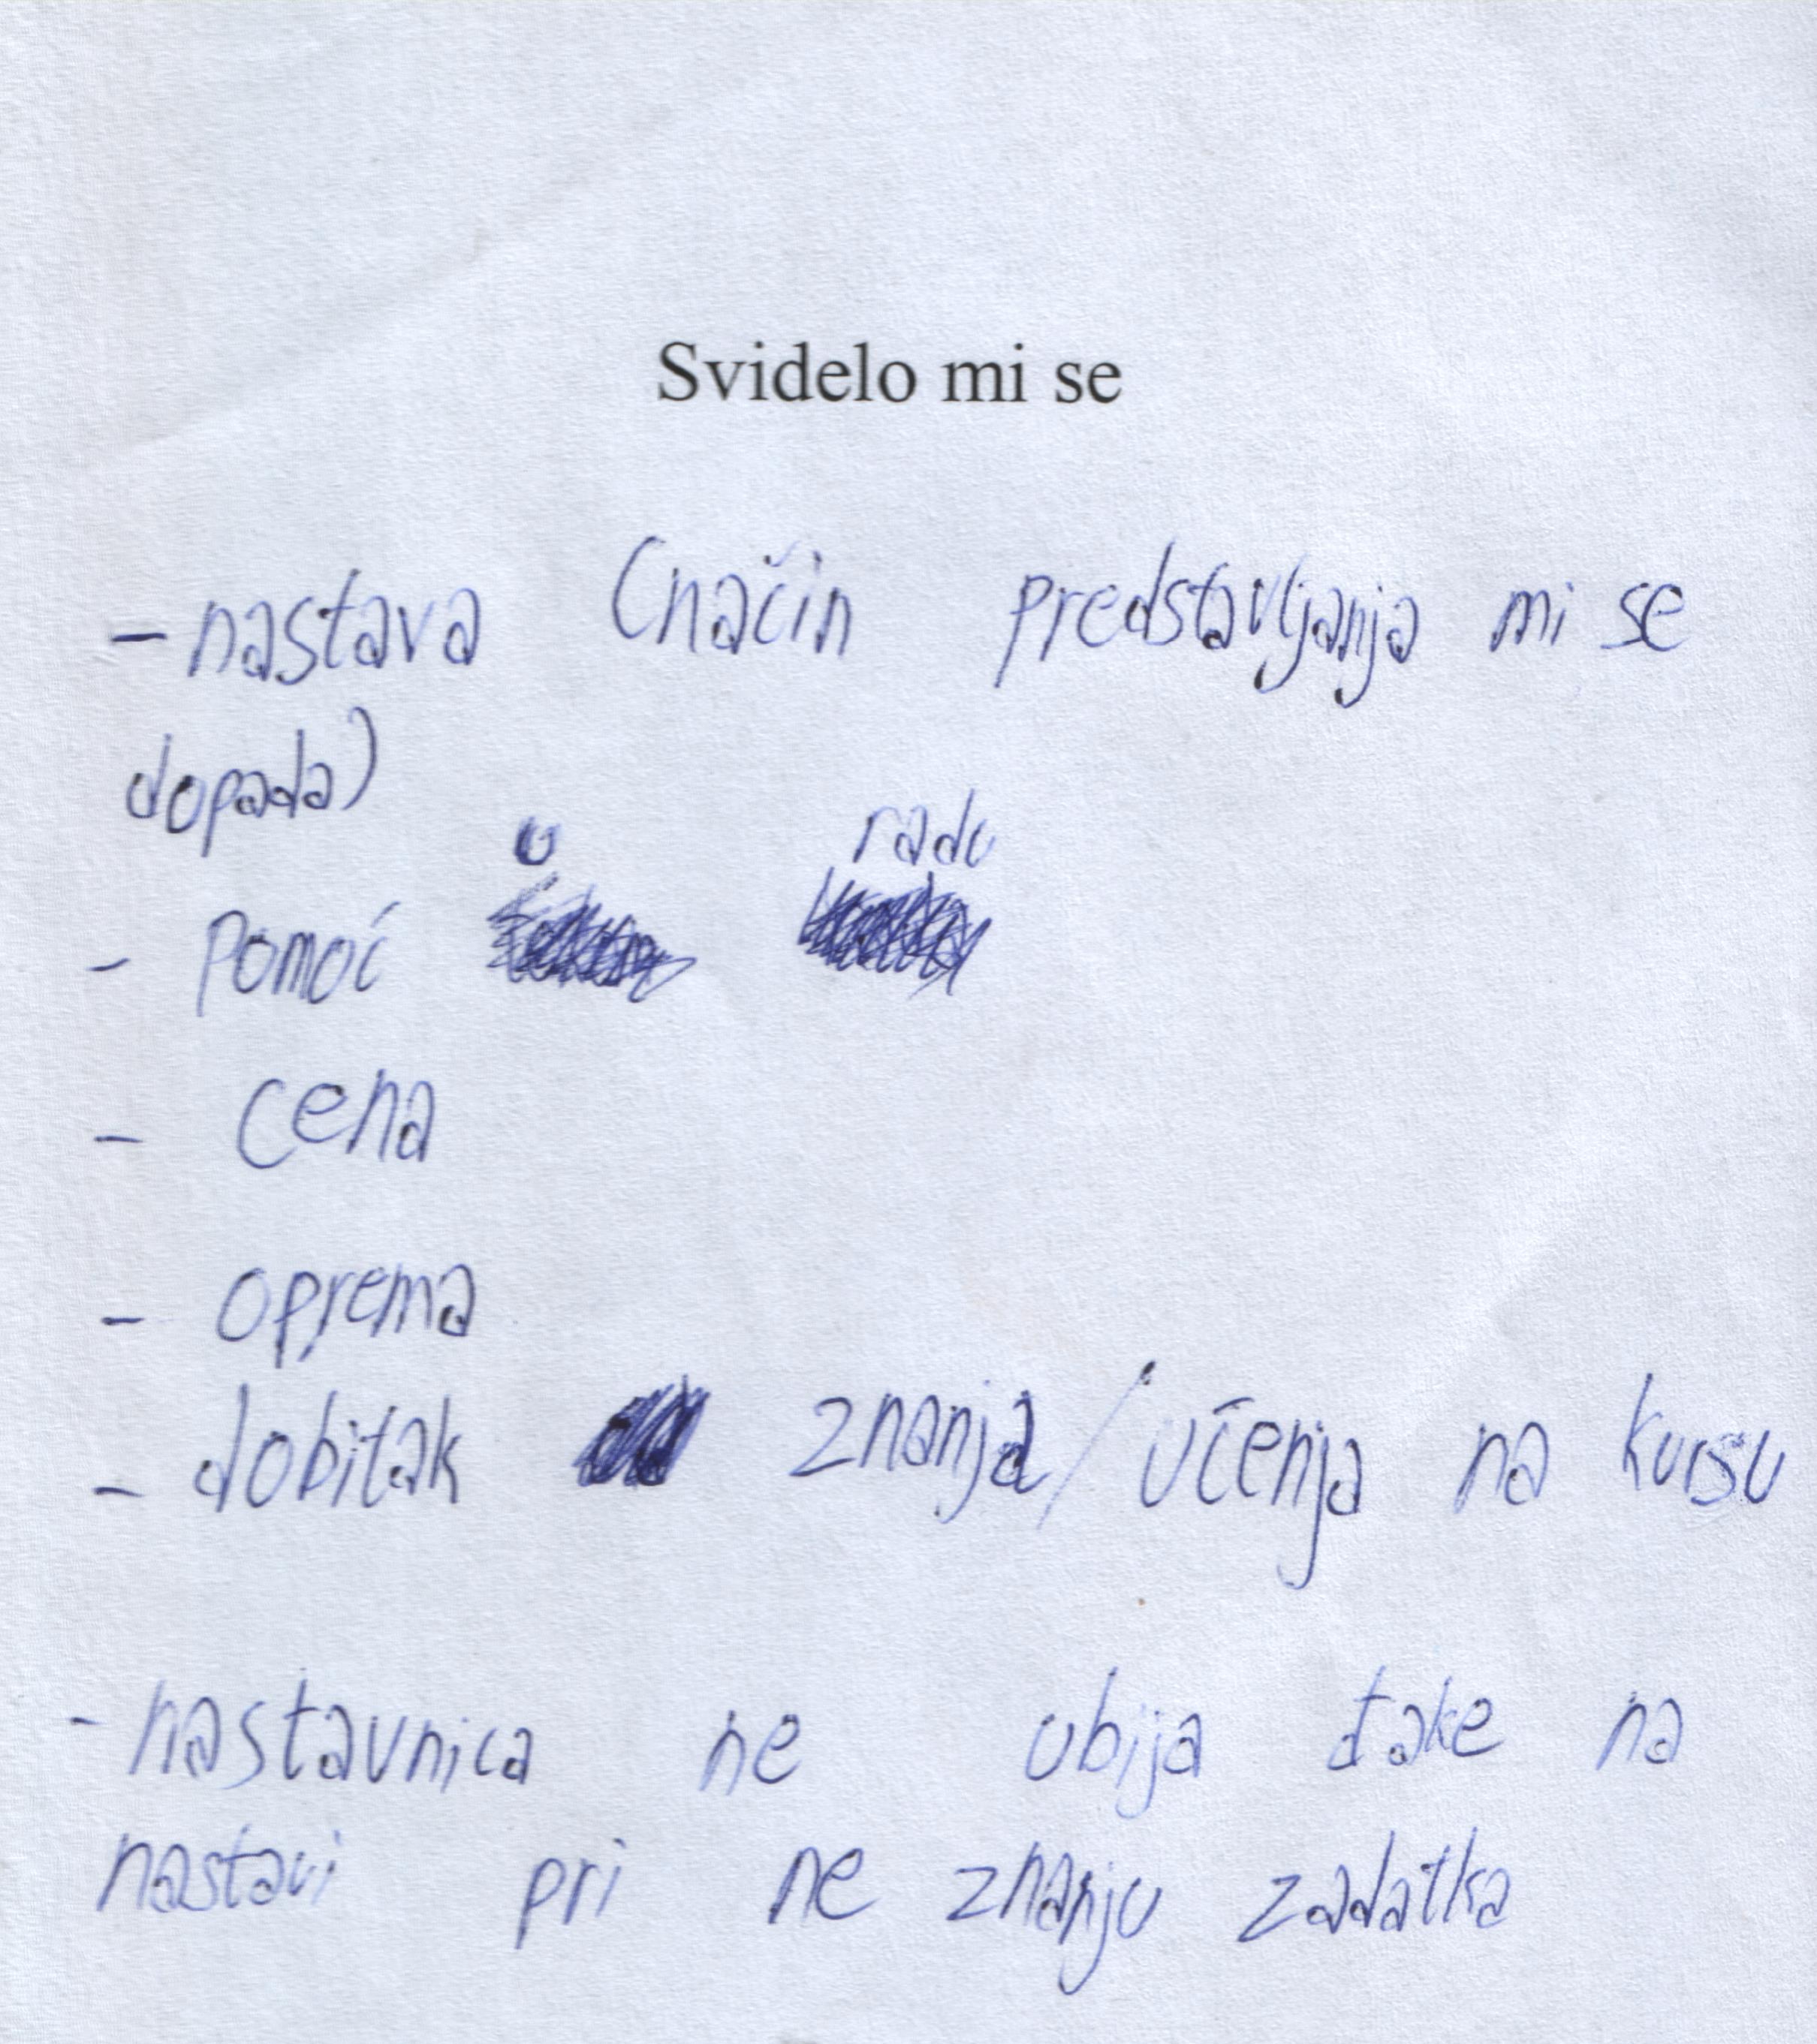 Svidelo mi se
- nastava (način predstavljanja mi se
dopada)
- pomoć u radu
- cena
- oprema
- dobitak znanja/učenja na kursu
- nastavnica ne ubija đake na
nastavi pri ne znanju zadatka